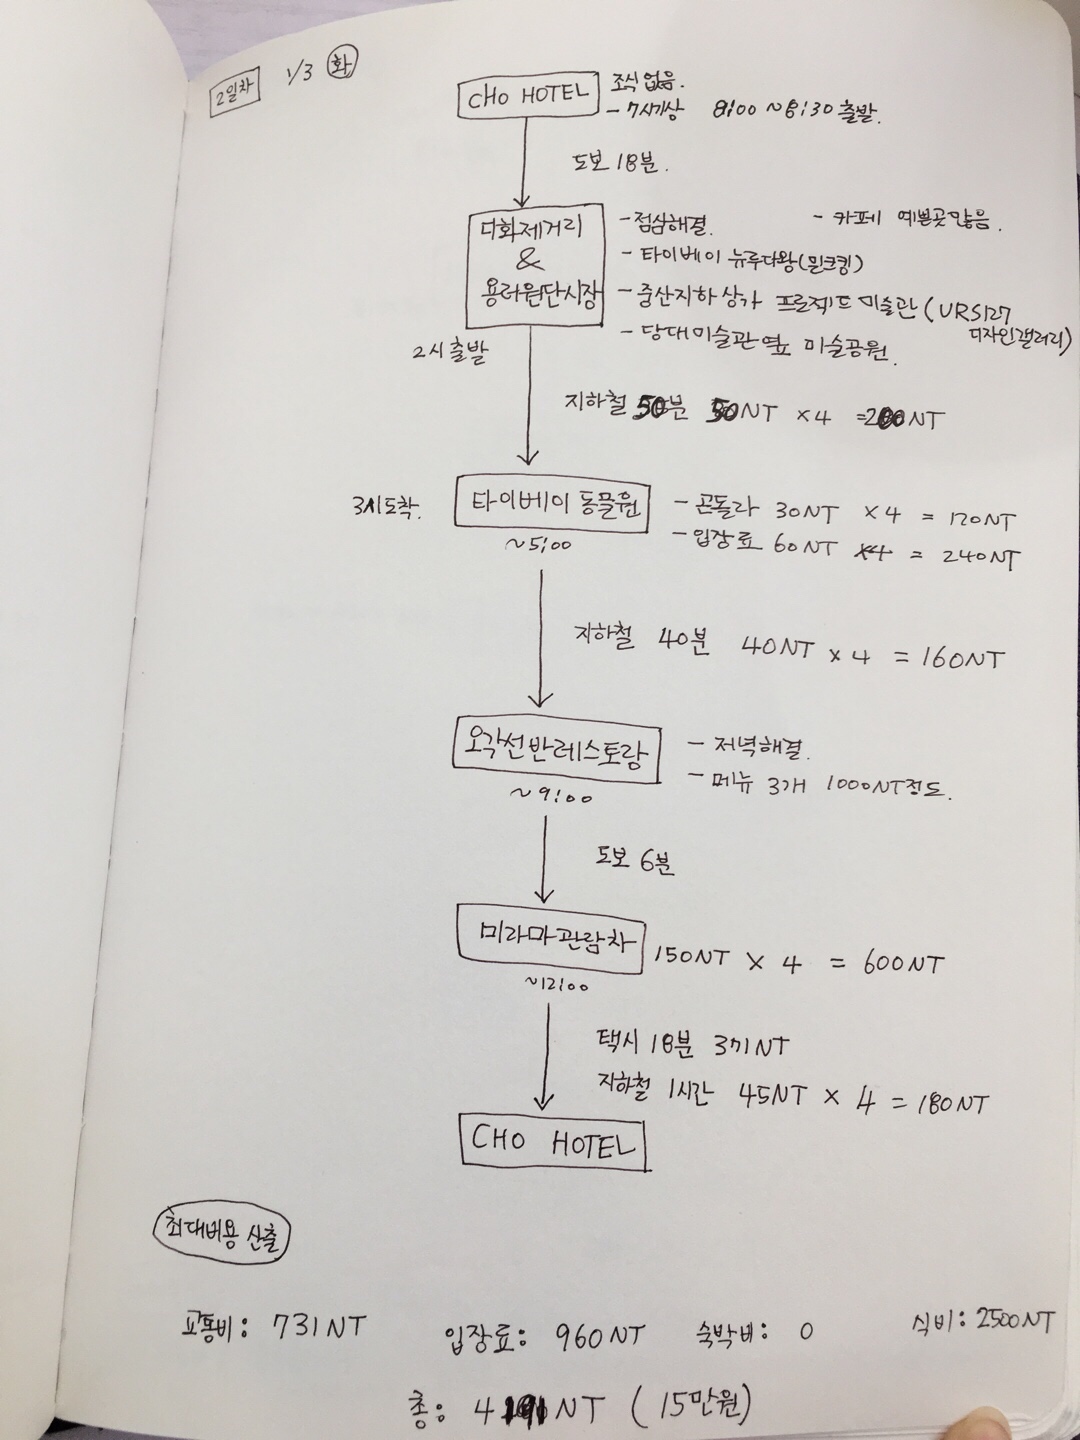 2일차 1/3 화
CHO HOTEL
조식 없음.
- 7시기상 8:00 ~ 8:30 출발.
도보 18분.
디화제거리
&
용러원단시장
- 점심해결. - 카페 예쁜곳많음.
- 타이베이 뉴루다왕(밀크킹)
- 중산지하상가 프로젝트 미술관(URS127 디자인갤러리)
- 당대미술관옆 미술공원.
2시 출발
지하철 50분 50NT ×4 =200NT
3시도착. 타이베이동물원
~5:00
- 곤돌라 30NT ×4 = 120NT
- 입장료 60NT ×4 = 240NT
지하철 40분 40NT ×4 = 160NT
오각선반레스토랑
~9:00
- 저녁해결.
- 메뉴 3개 1000NT정도.
도보 6분
미라마관람차 150NT × 4 = 600NT
~12:00
택시 18분 371NT
지하철 1시간 45NT × 4 = 180NT
CHO HOTEL
최대비용 산출
교통비: 731NT 입장료: 960NT 숙박비: 0 식비: 2500NT
총: 4191NT (15만원)